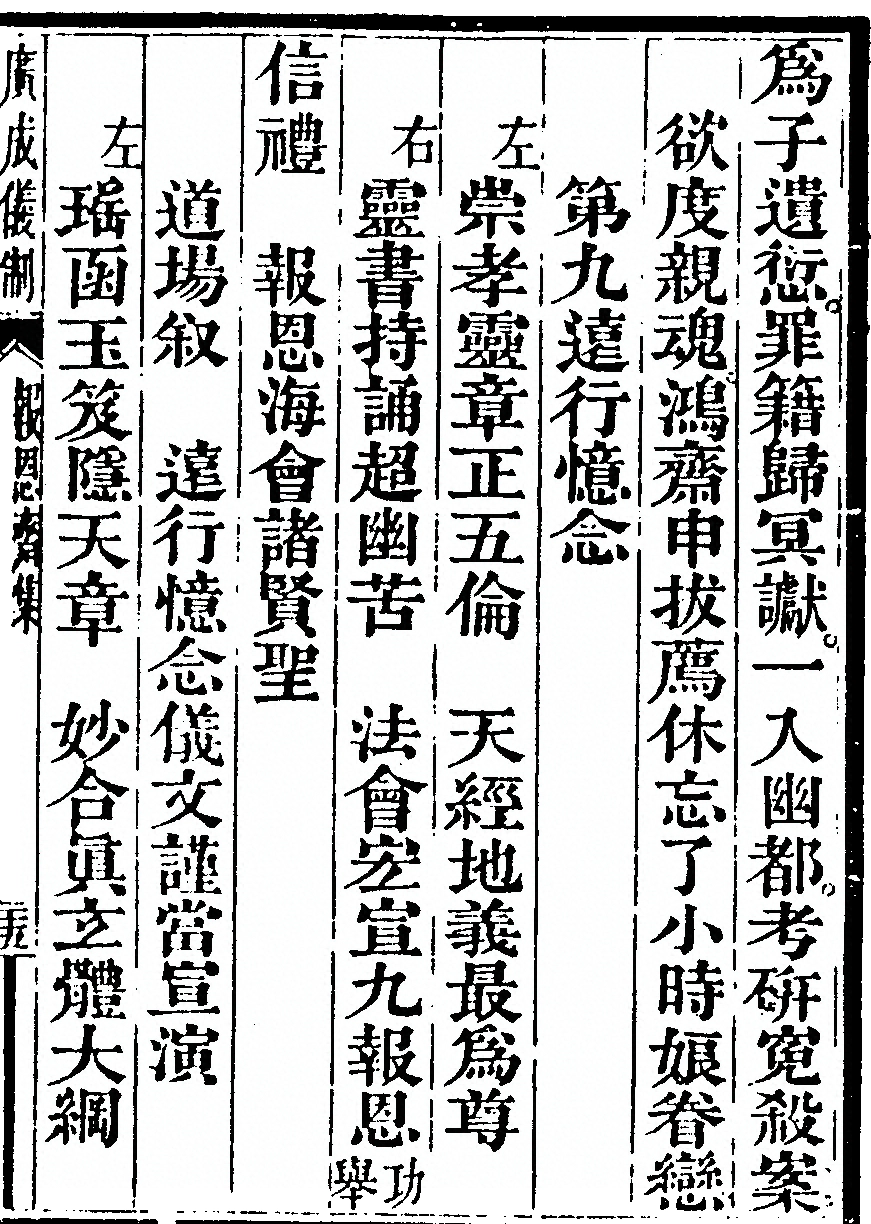 爲子遺愆。罪籍歸冥讞。一入幽都。考硏寃殺案
欲度親魂。鴻齋申拔薦休忘了小時娘眷戀
第九遠行憶念
左崇孝靈章正五倫　天經地義最爲尊
右靈書持誦超幽苦　法會宏宣九報恩功舉
信禮　報恩海會諸賢聖
道場叙　遠行憶念儀文謹當宣演
左瑤函玉笈隱天章　妙合眞立體大綱
廣成儀制　報恩齋集　二五